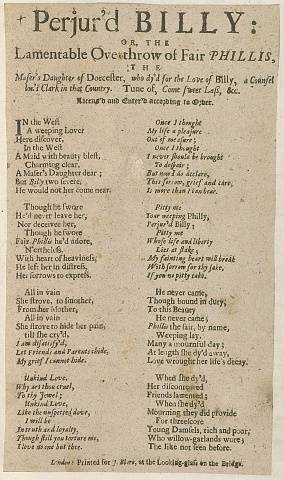 Perjur'd BILLY:
OR, THE
Lamentable Overthrow of Fair PHILLIS,
THE
Maser's Daughter of Dorcester, who dy'd for the Love of Billy, a Counsel
lor's Clark in that Country. Tune of, Come sweet Lass, &c.
Licens'd and Enter'd according to Order.
IN the West
A weeping Lover
Here discover,
In the West
A Maid with beauty blest,
Charming clear,
A Maser's Daughter dear;
But Billy too severe,
He would not her come near.
Though he swore
He'd never leave her,
Nor deceive her,
Though he swore
Fair Phillis he'd adore,
N'ertheless,
With heart of heaviness,
He left her in distress,
Her sorrows to express.
All in vain
She strove, to smother,
From her Mother,
All in vain
She strove to hide her pain,
till she cry'd,
I am dissatisfy'd,
Let Friends and Parents chide,
My grief I cannot hide.
Unkind Love,
Why art thou cruel,
To thy Jewel;
Unkind Love,
Like the unspotted dove,
I will be
In truth and loyalty,
Though still you torture me,
I love do not but thee.
Once I thought
My life a pleasure
Out of measure;
Once I thought
I never should be brought
To despair;
But now I do declare,
This sorrow, grief and care,
Is more than I can bear.
Pitty me
Your weeping Philly,
Perjur'd Billy;
Pitty me
Whose life and liberty
Lies at stake;
My fainting heart will break
With sorrow for thy sake,
If you no pitty take.
He never came,
Though bound in duty,
To this Beauty
He never came;
Phillis the fair, by name,
Weeping lay,
Many a mournful day;
At length she dy'd away,
Love wrought her life's decay.
When she dy'd,
Her discontented
Friends lamented;
When she dy'd
Mourning they did provide
For threescore
Young Damsels, rich and poor,
Who willow-garlands wore;
The like not seen before.
London: Printed for J. Blare, at the Looking-glass on the Bridge.